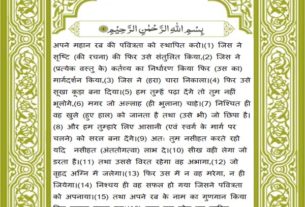 بِسْمِ اللَّهِ الرَّحْمَٰنِ الرَّحِيمِ
अपने महान रब की पवित्रता को स्थापित करो।(1) जिस ने
सृष्टि (की रचना) की फिर उसे संतुलित किया,(2) जिस ने
(प्रत्येक वस्तु के) कर्तव्य का निर्धारण किया फिर (उस का)
मार्गदर्शन किया,(3) जिस ने (हरा) चारा निकाला।(4) फिर उसे
सूखा कूड़ा बना दिया।(5) हम तुम्हें पढ़ा देंगे तो तुम नहीं
भूलोगे,(6) मगर जो अल्लाह (ही भुलाना) चाहे।(7) निश्चित ही
वह खुले (हुए हाल) को जानता है तथा (उसे भी) जो छिपा है।
(8) और हम तुम्हारे लिए आसानी (एवं स्वर्ग के मार्ग पर
चलने) को सरल बना देंगे।(9) अतः तुम नसीहत करते रहो
यदि नसीहत (अंततोगत्वा) लाभ दे।(10) सीख वही लेगा जो
डरता है।(11) तथा उससे विरत रहेगा वह अभागा,(12) जो
वृहद अग्नि में जलेगा।(13) फिर उस में न वह मरेगा, न ही
जियेगा।(14) निश्चय ही वह सफल हो गया जिसने पवित्रता
को अपनाया।(15) तथा अपने रब के नाम का गुणगान किया